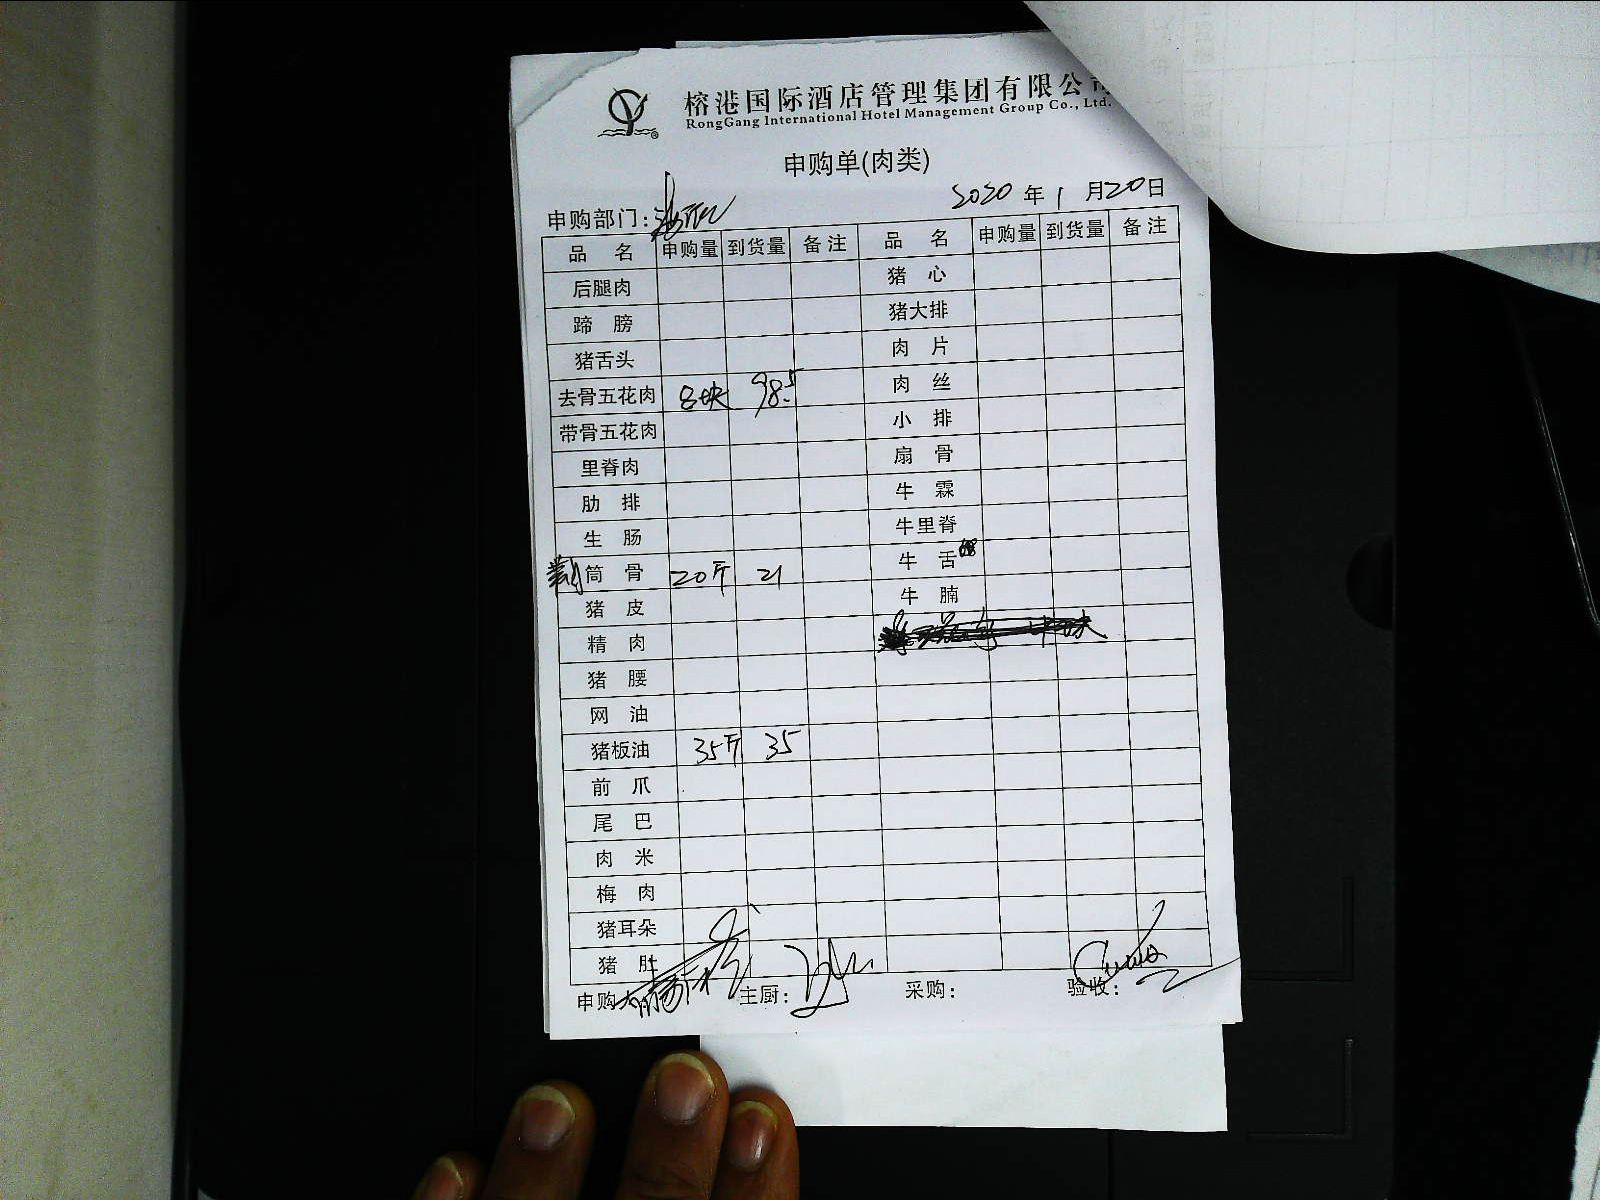 榕港国际酒店管理集团有限公司
RongGang International Hotel Management Group Co., Ltd.
申购单(肉类)
2020 年 1 月 20 日
申购部门:
品 名 申购量 到货量 备注 品 名 申购量 到货量 备注
后腿肉 猪 心
蹄 膀 猪大排
猪舌头 肉 片
去骨五花肉 8块 98.5 肉 丝
带骨五花肉 小 排
里脊肉 扇 骨
肋 排 牛 霖
生 肠 牛里脊
筒 骨 20斤 21 牛 舌
猪 皮 牛 腩
精 肉
猪 腰
网 油
猪板油 35斤 35
前 爪
尾 巴
肉 米
梅 肉
猪耳朵
猪 肚
申购人 主厨: 采购: 验收: